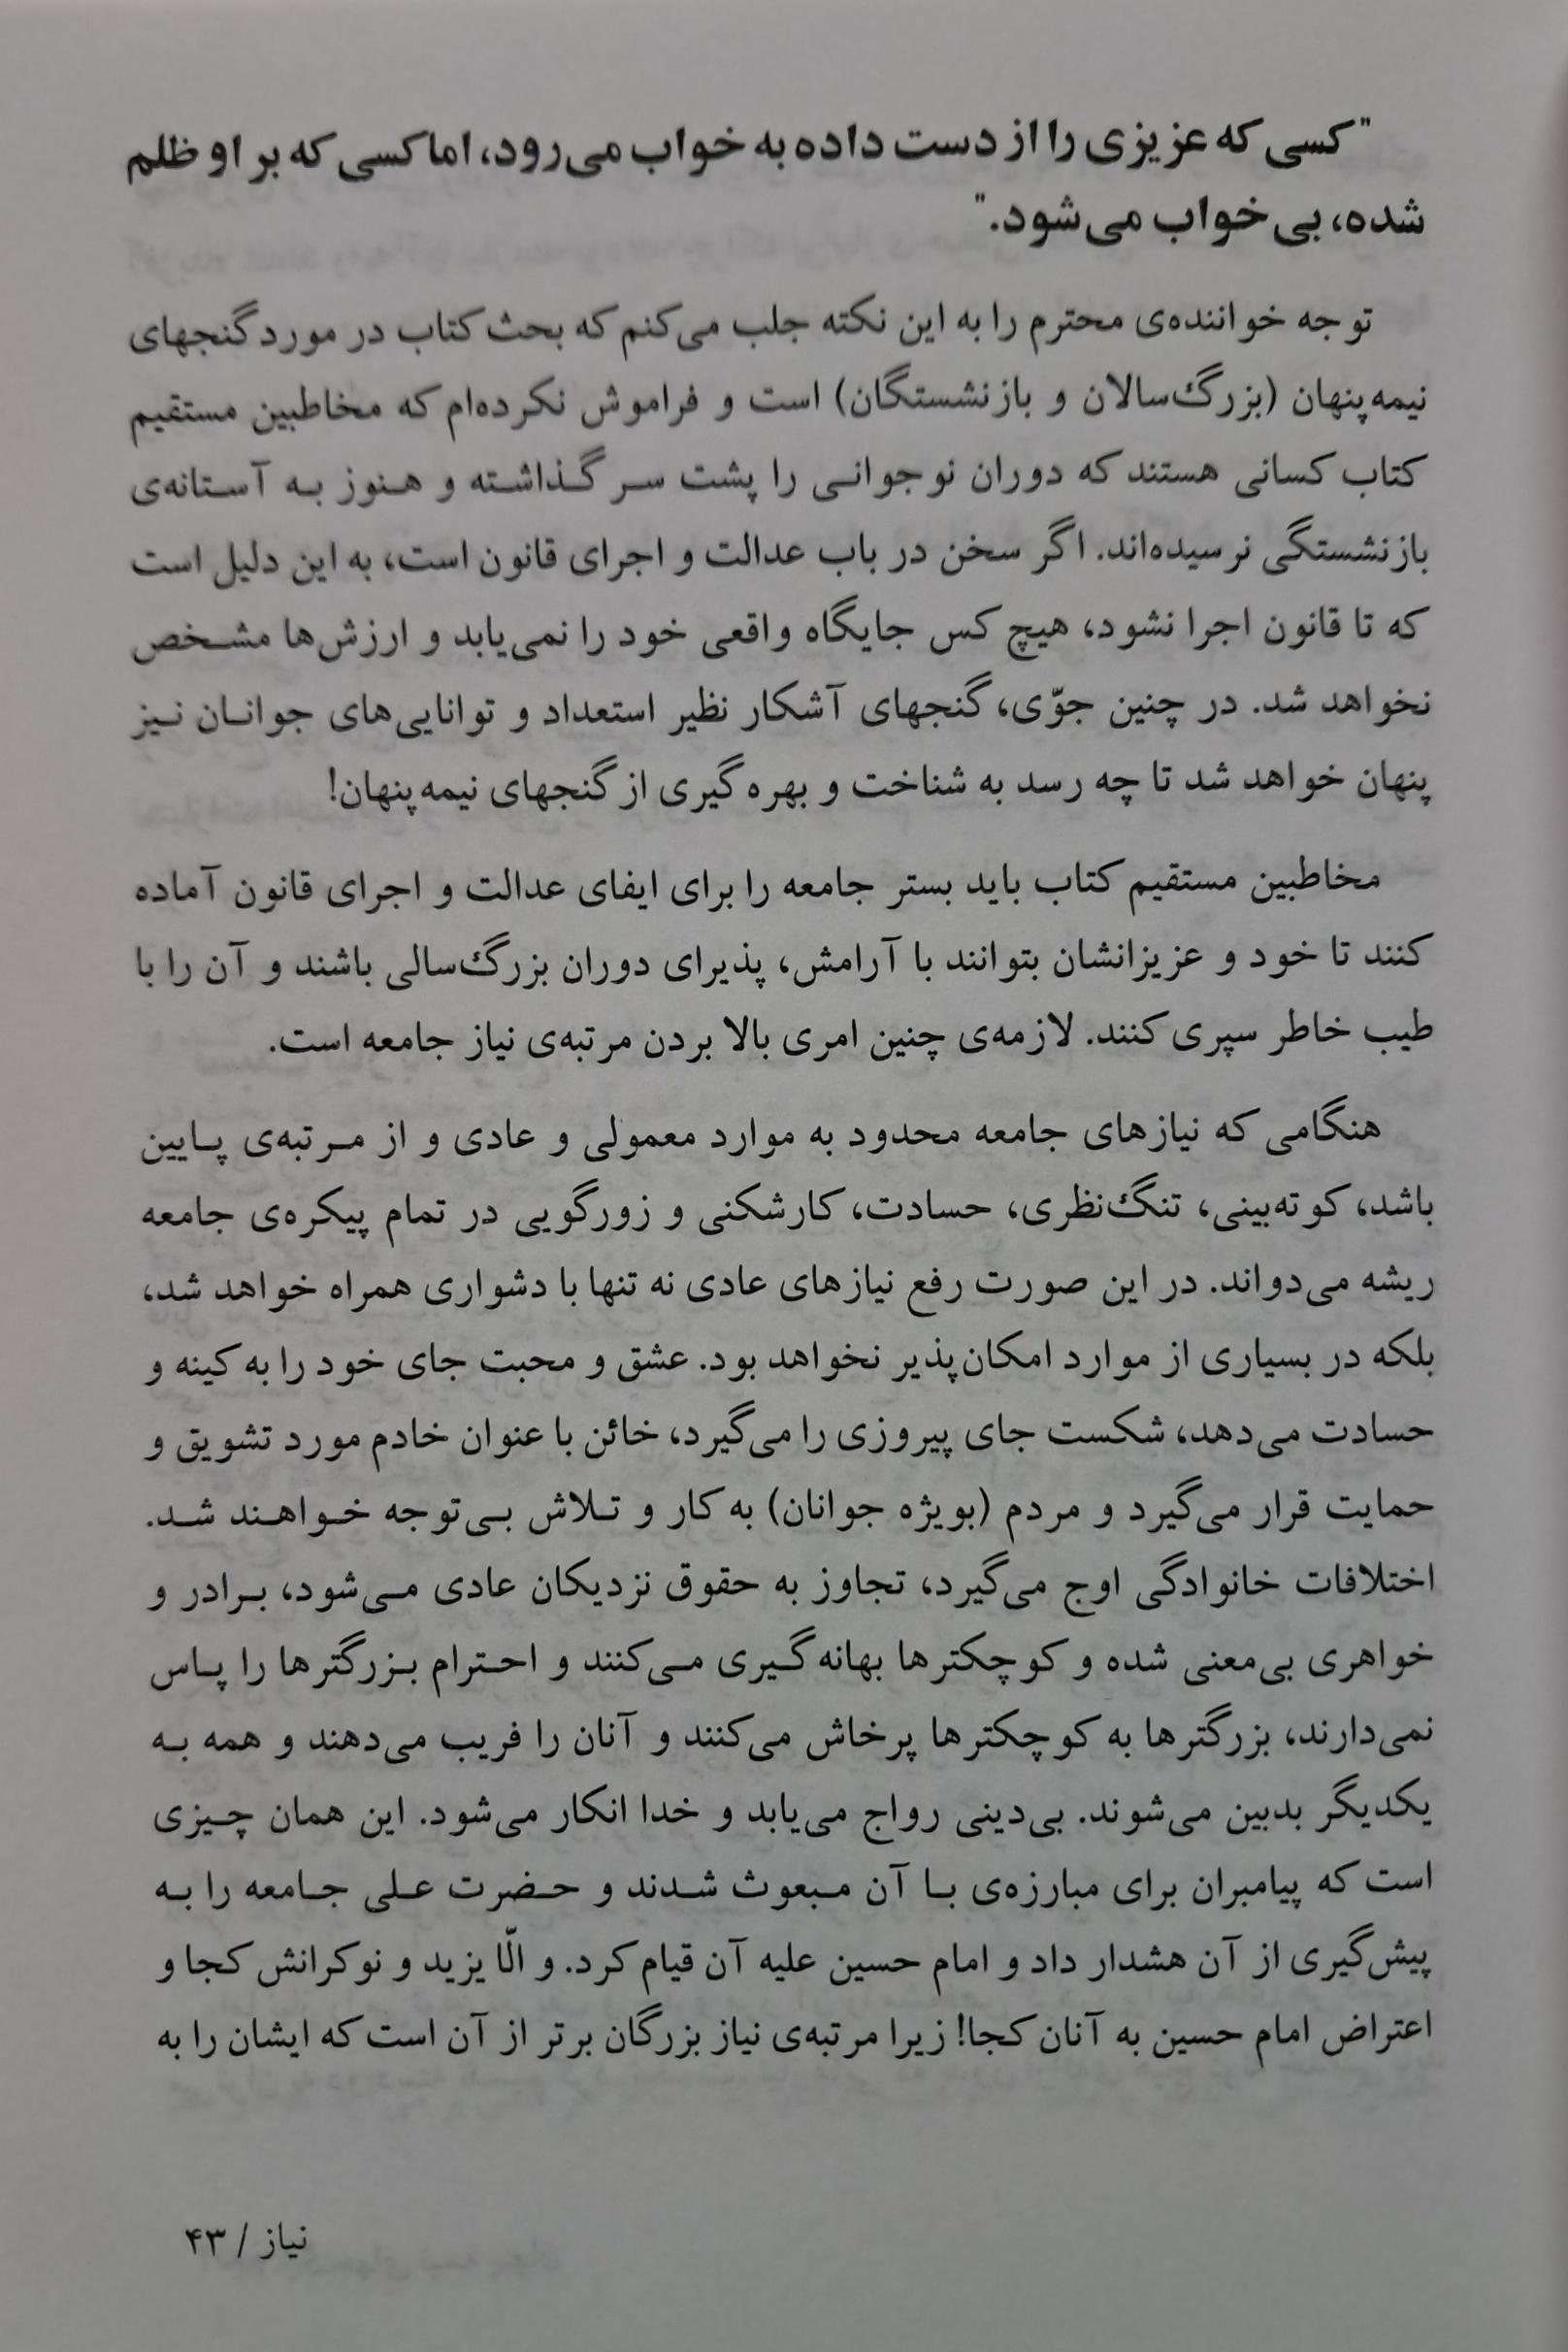 "کسی که عزیزی را از دست داده به خواب می‌رود، اما کسی که بر او ظلم
شده، بی‌خواب می‌شود."
توجه خواننده‌ی محترم را به این نکته جلب می‌کنم که بحث کتاب در مورد گنجهای
نیمه‌پنهان (بزرگ‌سالان و بازنشستگان) است و فراموش نکرده‌ام که مخاطبین مستقیم
کتاب کسانی هستند که دوران نوجوانی را پشت سر گذاشته و هنوز به آستانه‌ی
بازنشستگی نرسیده‌اند. اگر سخن در باب عدالت و اجرای قانون است، به این دلیل است
که تا قانون اجرا نشود، هیچ کس جایگاه واقعی خود را نمی‌یابد و ارزش‌ها مشخص
نخواهد شد. در چنین جوّی، گنجهای آشکار نظیر استعداد و توانایی‌های جوانان نیز
پنهان خواهد شد تا چه رسد به شناخت و بهره‌گیری از گنجهای نیمه‌پنهان!
مخاطبین مستقیم کتاب باید بستر جامعه را برای ایفای عدالت و اجرای قانون آماده
کنند تا خود و عزیزانشان بتوانند با آرامش، پذیرای دوران بزرگ‌سالی باشند و آن را با
طیب خاطر سپری کنند. لازمه‌ی چنین امری بالا بردن مرتبه‌ی نیاز جامعه است.
هنگامی که نیازهای جامعه محدود به موارد معمولی و عادی و از مرتبه‌ی پایین
باشد، کوته‌بینی، تنگ‌نظری، حسادت، کارشکنی و زورگویی در تمام پیکره‌ی جامعه
ریشه می‌دواند. در این صورت رفع نیازهای عادی نه تنها با دشواری همراه خواهد شد،
بلکه در بسیاری از موارد امکان‌پذیر نخواهد بود. عشق و محبت جای خود را به کینه و
حسادت می‌دهد، شکست جای پیروزی را می‌گیرد، خائن با عنوان خادم مورد تشویق و
حمایت قرار می‌گیرد و مردم (بویژه جوانان) به کار و تلاش بی‌توجه خواهند شد.
اختلافات خانوادگی اوج می‌گیرد، تجاوز به حقوق نزدیکان عادی می‌شود، برادر و
خواهری بی‌معنی شده و کوچکترها بهانه‌گیری می‌کنند و احترام بزرگترها را پاس
نمی‌دارند، بزرگترها به کوچکترها پرخاش می‌کنند و آنان را فریب می‌دهند و همه به
یکدیگر بدبین می‌شوند. بی‌دینی رواج می‌یابد و خدا انکار می‌شود. این همان چیزی
است که پیامبران برای مبارزه‌ی با آن مبعوث شدند و حضرت علی جامعه را به
پیش‌گیری از آن هشدار داد و امام حسین علیه آن قیام کرد. و الّا یزید و نوکرانش کجا و
اعتراض امام حسین به آنان کجا! زیرا مرتبه‌ی نیاز بزرگان برتر از آن است که ایشان را به
نیاز / ۴۳